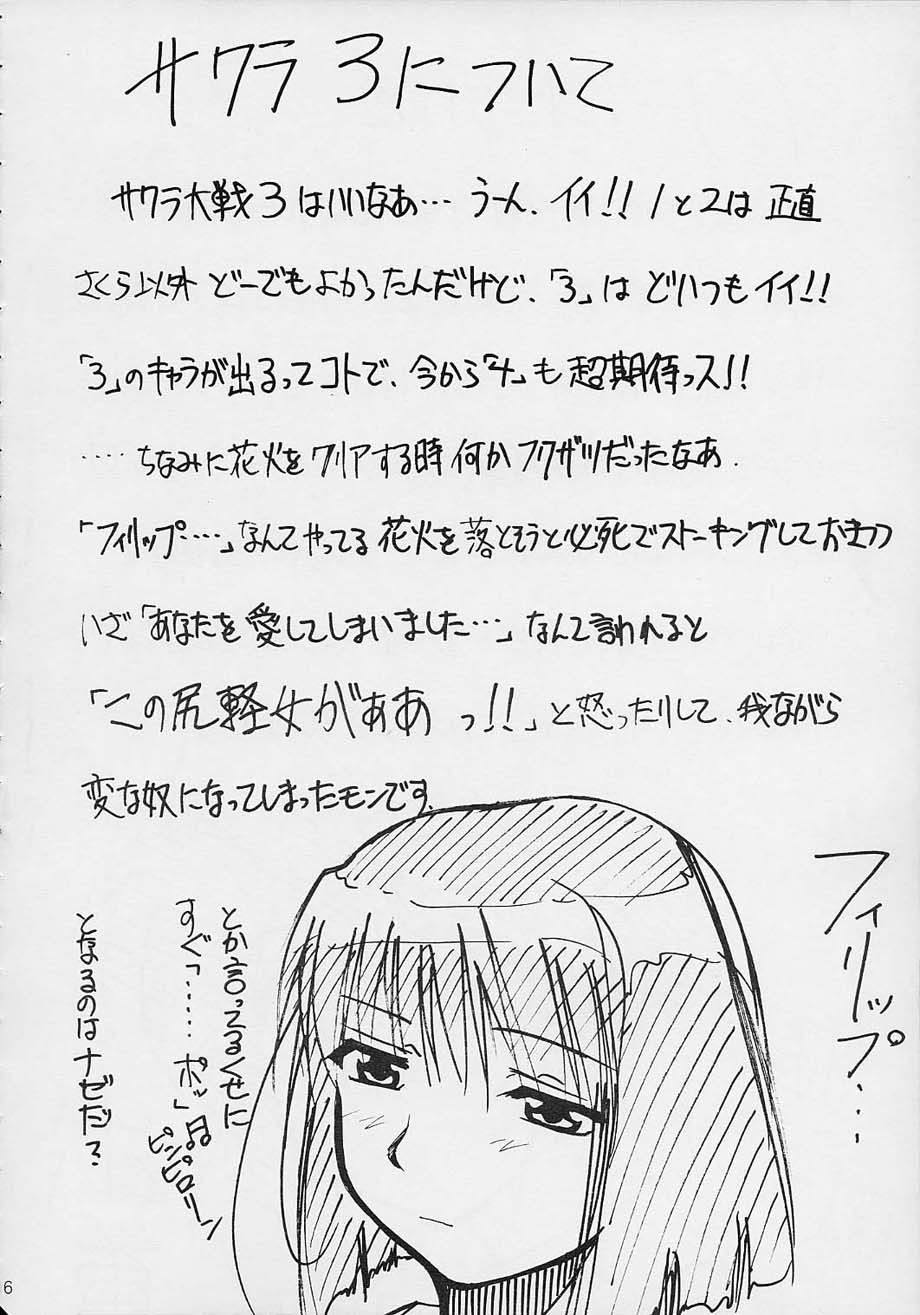 サクラ3について
サクラ大戦3はいいなぁ… うーん、イイ!! 1と2は正直
さくら以外どーでもよかったんだけど、「3」はどいつもイイ!!
「3」のキャラが出るってコトで、今から「4」も超期待っス!!
‥‥ちなみに花火をクリアする時何かフクザツだったなあ.
「フィリップ‥‥」なんてやってる花火を落とそうと必死でストーキングしておきつつ
いざ「あなたを愛してしまいました…」なんて言われると
「この尻軽女がぁああっ!!」と怒ったりして、我ながら
変な奴になってしまったモンです.
フィリップ‥‥
とか言ってるくせに
すぐ「‥‥‥ポッ」♫
ピンピロリーン
となるのはナゼだ?
6